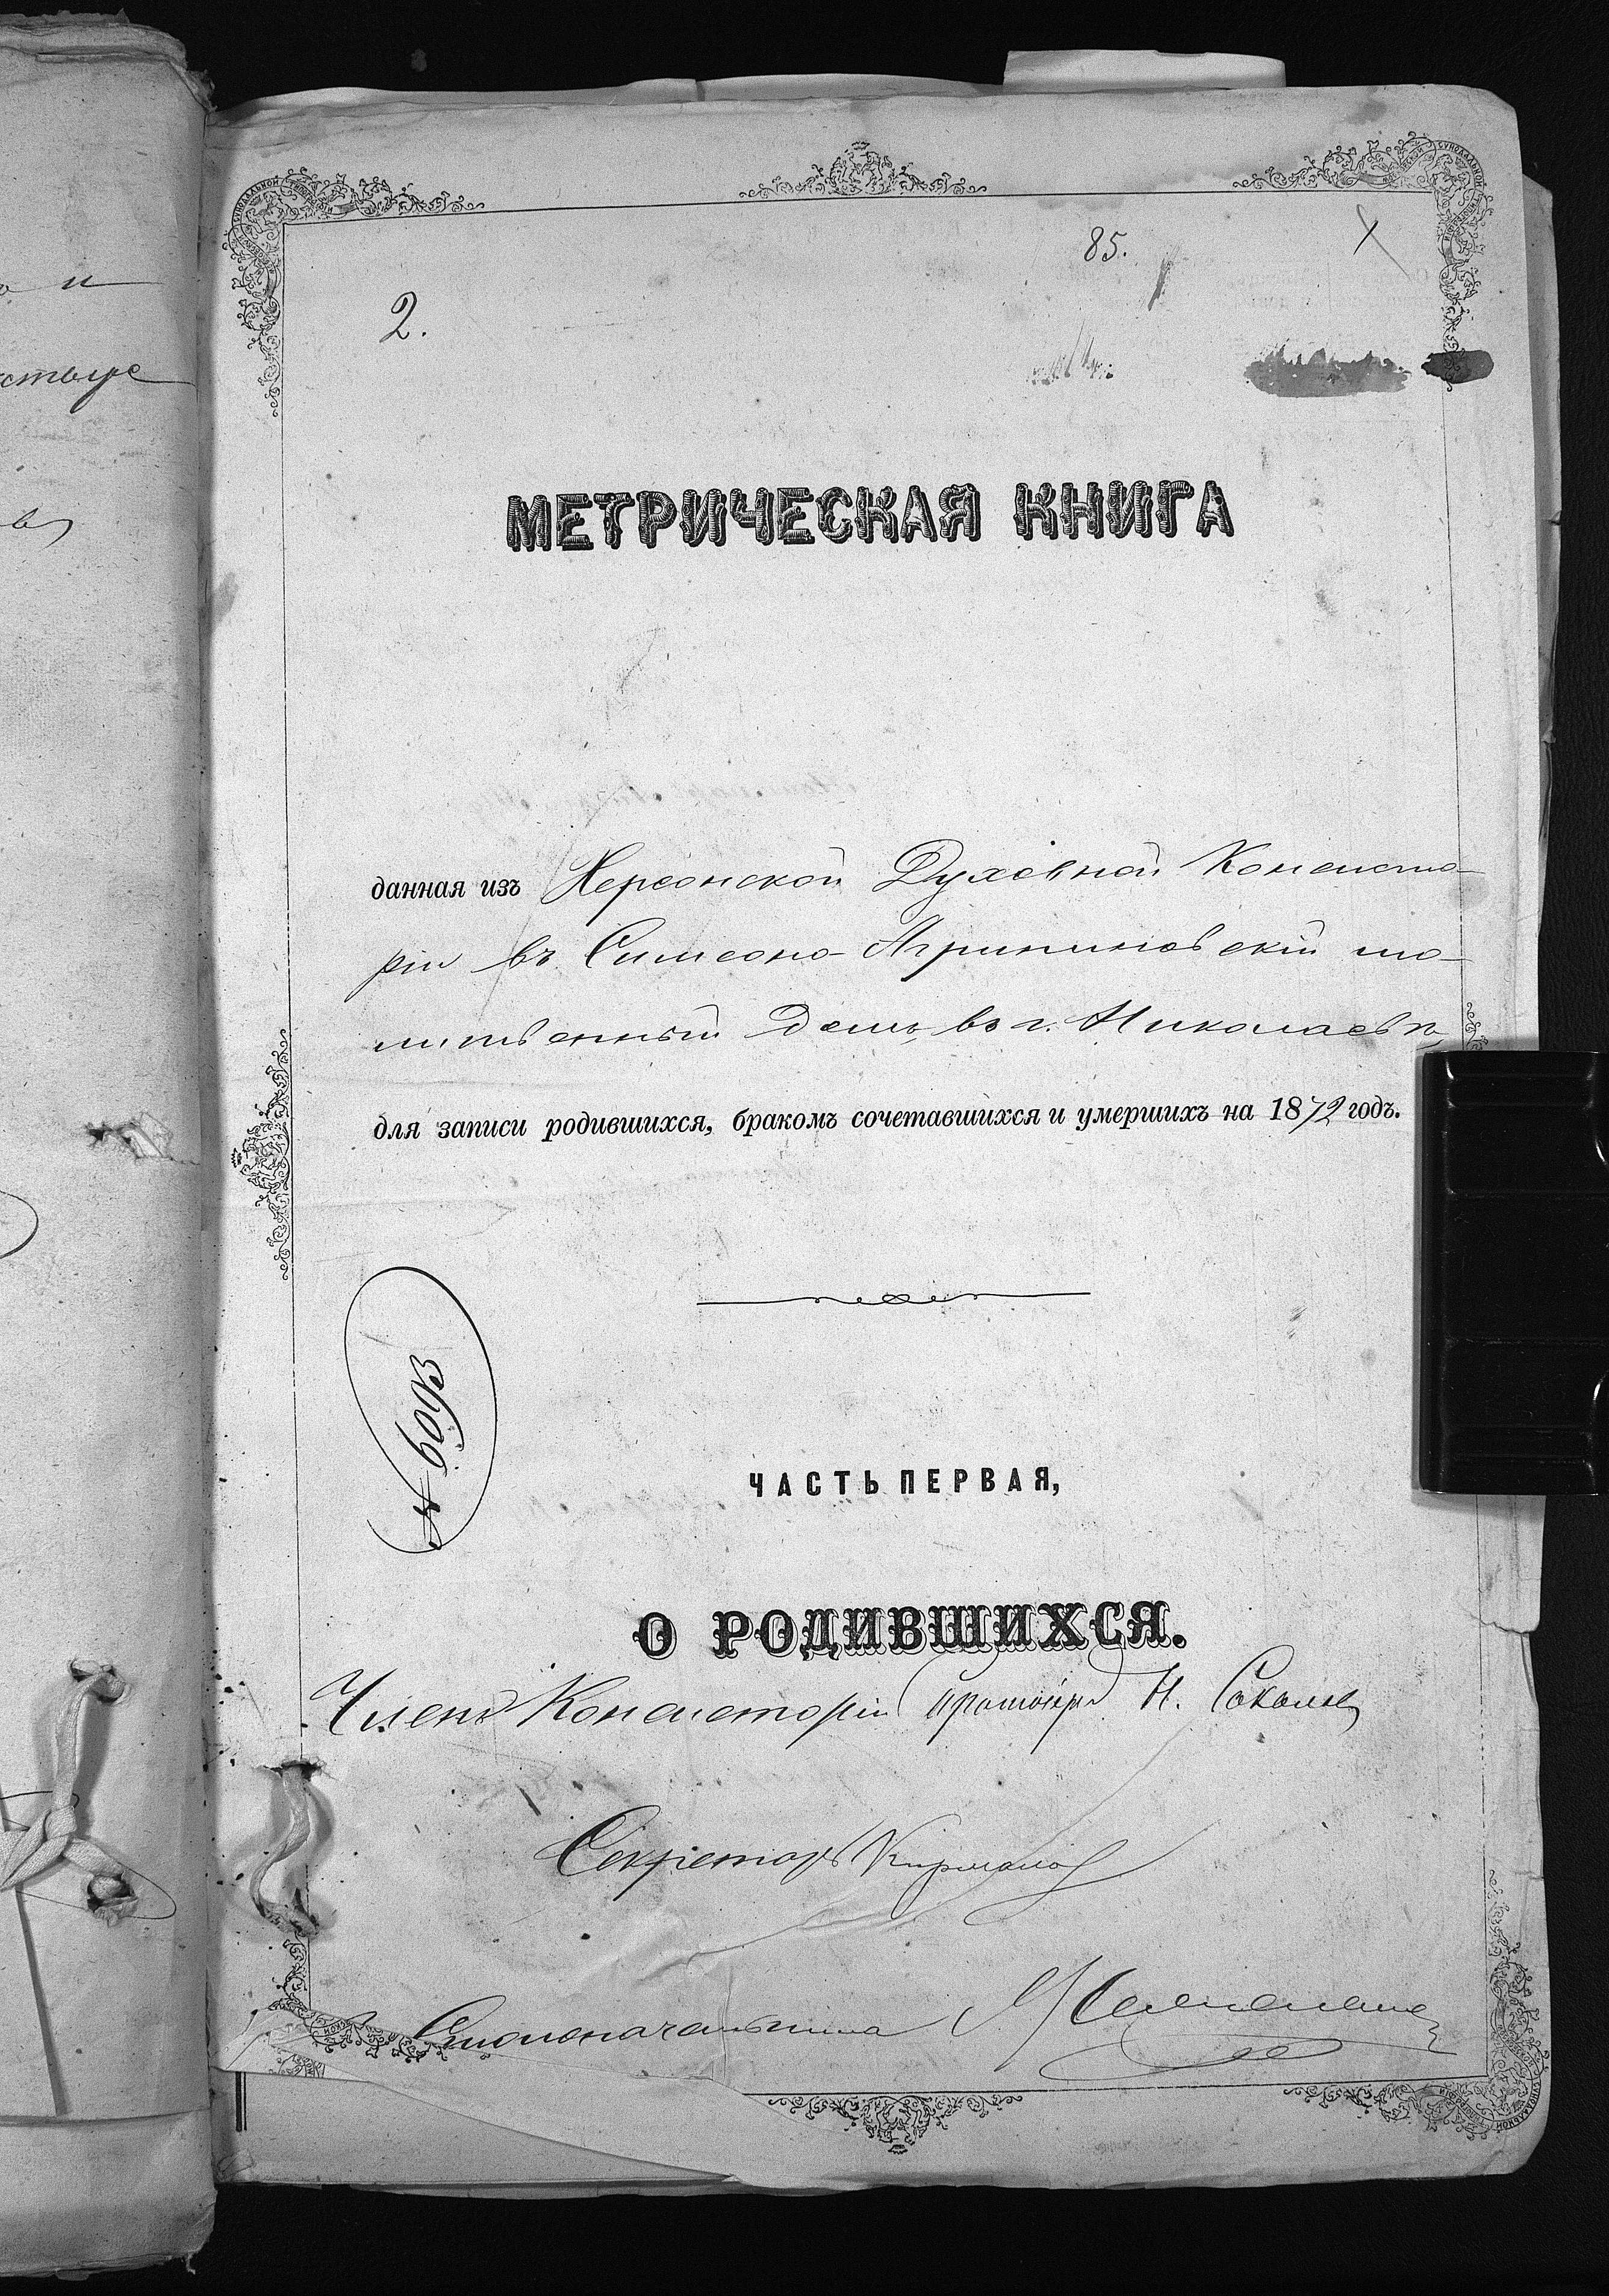 85.
2.
МЕТРИЧЕСКАЯ КНИГА
данная изъ Херсонской Духовной Консисто-
ріи въ Симеоно-Агрипиновскій мо-
литвенный домъ въ г. Николаевѣ
для записи родившихся, бракомъ сочетавшихся и умершихъ на 1872 годъ.
№ 6093
ЧАСТЬ ПЕРВАЯ,
О РОДИВШИХСЯ.
Членъ Консисторіи Протоіерей Н. Соколовъ
Секретарь
Столоначальника